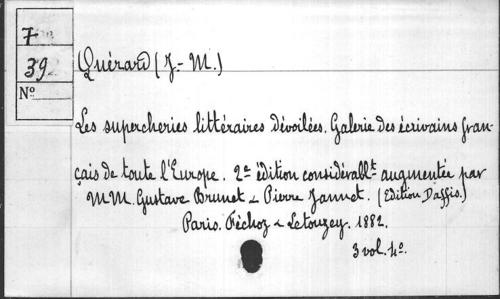 7
39
No
Quérard (J.-M.)
Les supercheries littéraires dévoilées. Galerie des écrivains fran-
çais de toute l'Europe. 2e édition considérablt augmentée par
MM. Gustave Brunet & Pierre Jannet. (Edition Daffis.)
Paris. Féchoz & Letouzey. 1882.
3 vol. 4o.